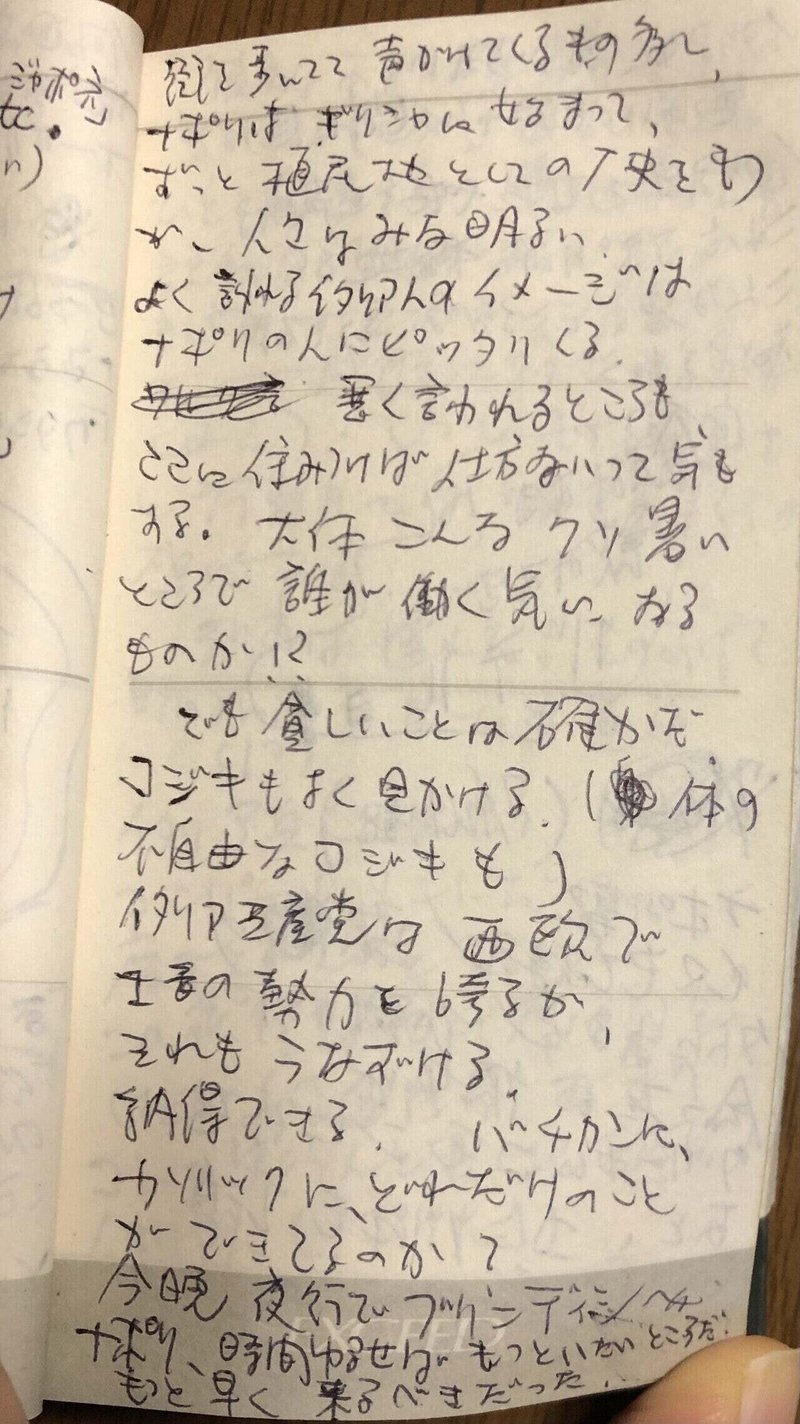 ジャポネ
tc.
n)
街を歩いてて声がけてくるもの多し、
ナポリはギリシャに始まって、
ずっと植民地としての歴史をもつ
が、人々はみな明るい
よく言われるイタリア人のイメージは
ナポリの人にピッタリくる.
悪く言われるところも
ここに住みつけば仕方ないって気も
する。大体こんなクソ暑い
ところで誰が働く気になる
ものか!?
でも貧しいことは確かだ
コジキもよく見かける. (体の
不自由なコジキも)
イタリア共産党は西欧で
の勢力を誇るが,
それもうなずける.
納得できる. バチカンに、
カソリックに、どれだけのこと
ができてるのか?
今晩夜行でブリンディシへ
ナポリ、時間ゆるせばもっといたいところだ.
もっと早く来るべきだった.
EXCEED